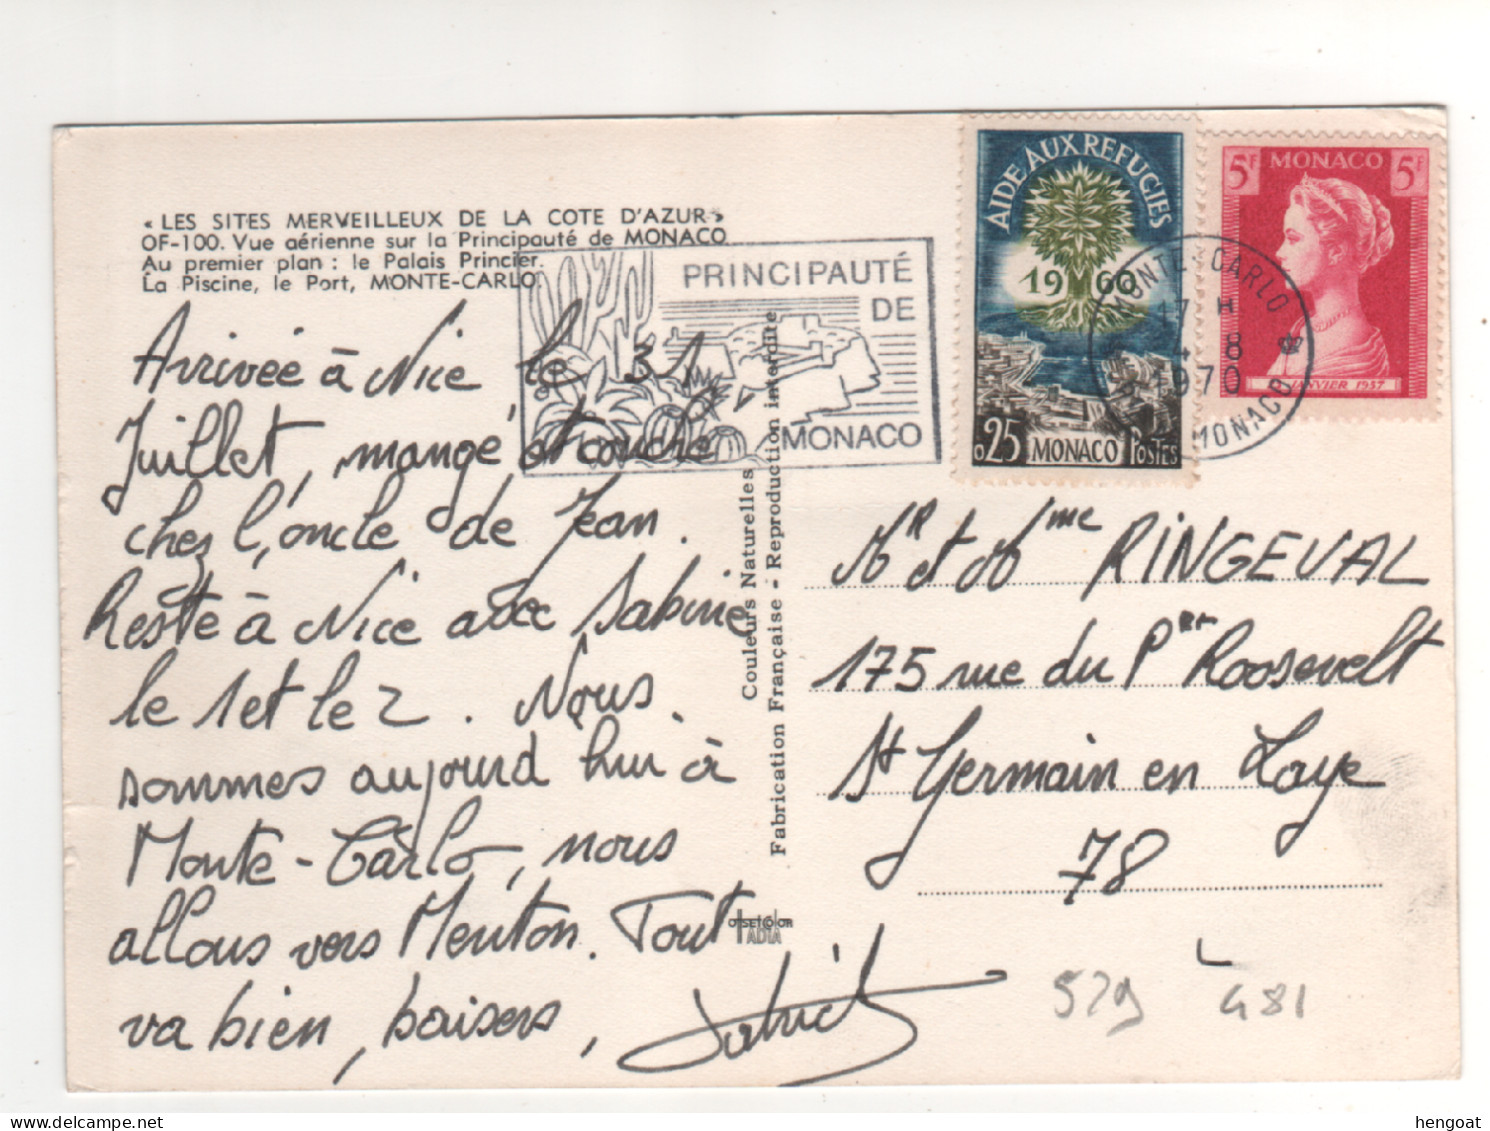 « LES SITES MERVEILLEUX DE LA COTE D'AZUR »
OF-100. Vue aérienne sur la Principauté de MONACO
Au premier plan : le Palais Princier.
La Piscine, le Port, MONTE-CARLO.
Arrivée à Nice le 31
Juillet, mangé et couché
chez l'oncle de Jean.
Resté à Nice avec Sabine
le 1 et le 2. Nous
sommes aujourd'hui à
Monte-Carlo, nous
allons vers Menton. Tout
va bien, baisers,
Patrick
PRINCIPAUTÉ
DE
MONACO
AIDE AUX REFUGIES
1960
0,25 MONACO POSTES
5F MONACO 5F
JANVIER 1957
MONTE-CARLO
17 H
8
1970
MONACO
Couleurs Naturelles
Fabrication Française - Reproduction interdite
OFFSETCOLOR
IADIA
Mr et Mme RINGEVAL
175 rue du Pent Roosevelt
St Germain en Laye
78
529 481
hengoat